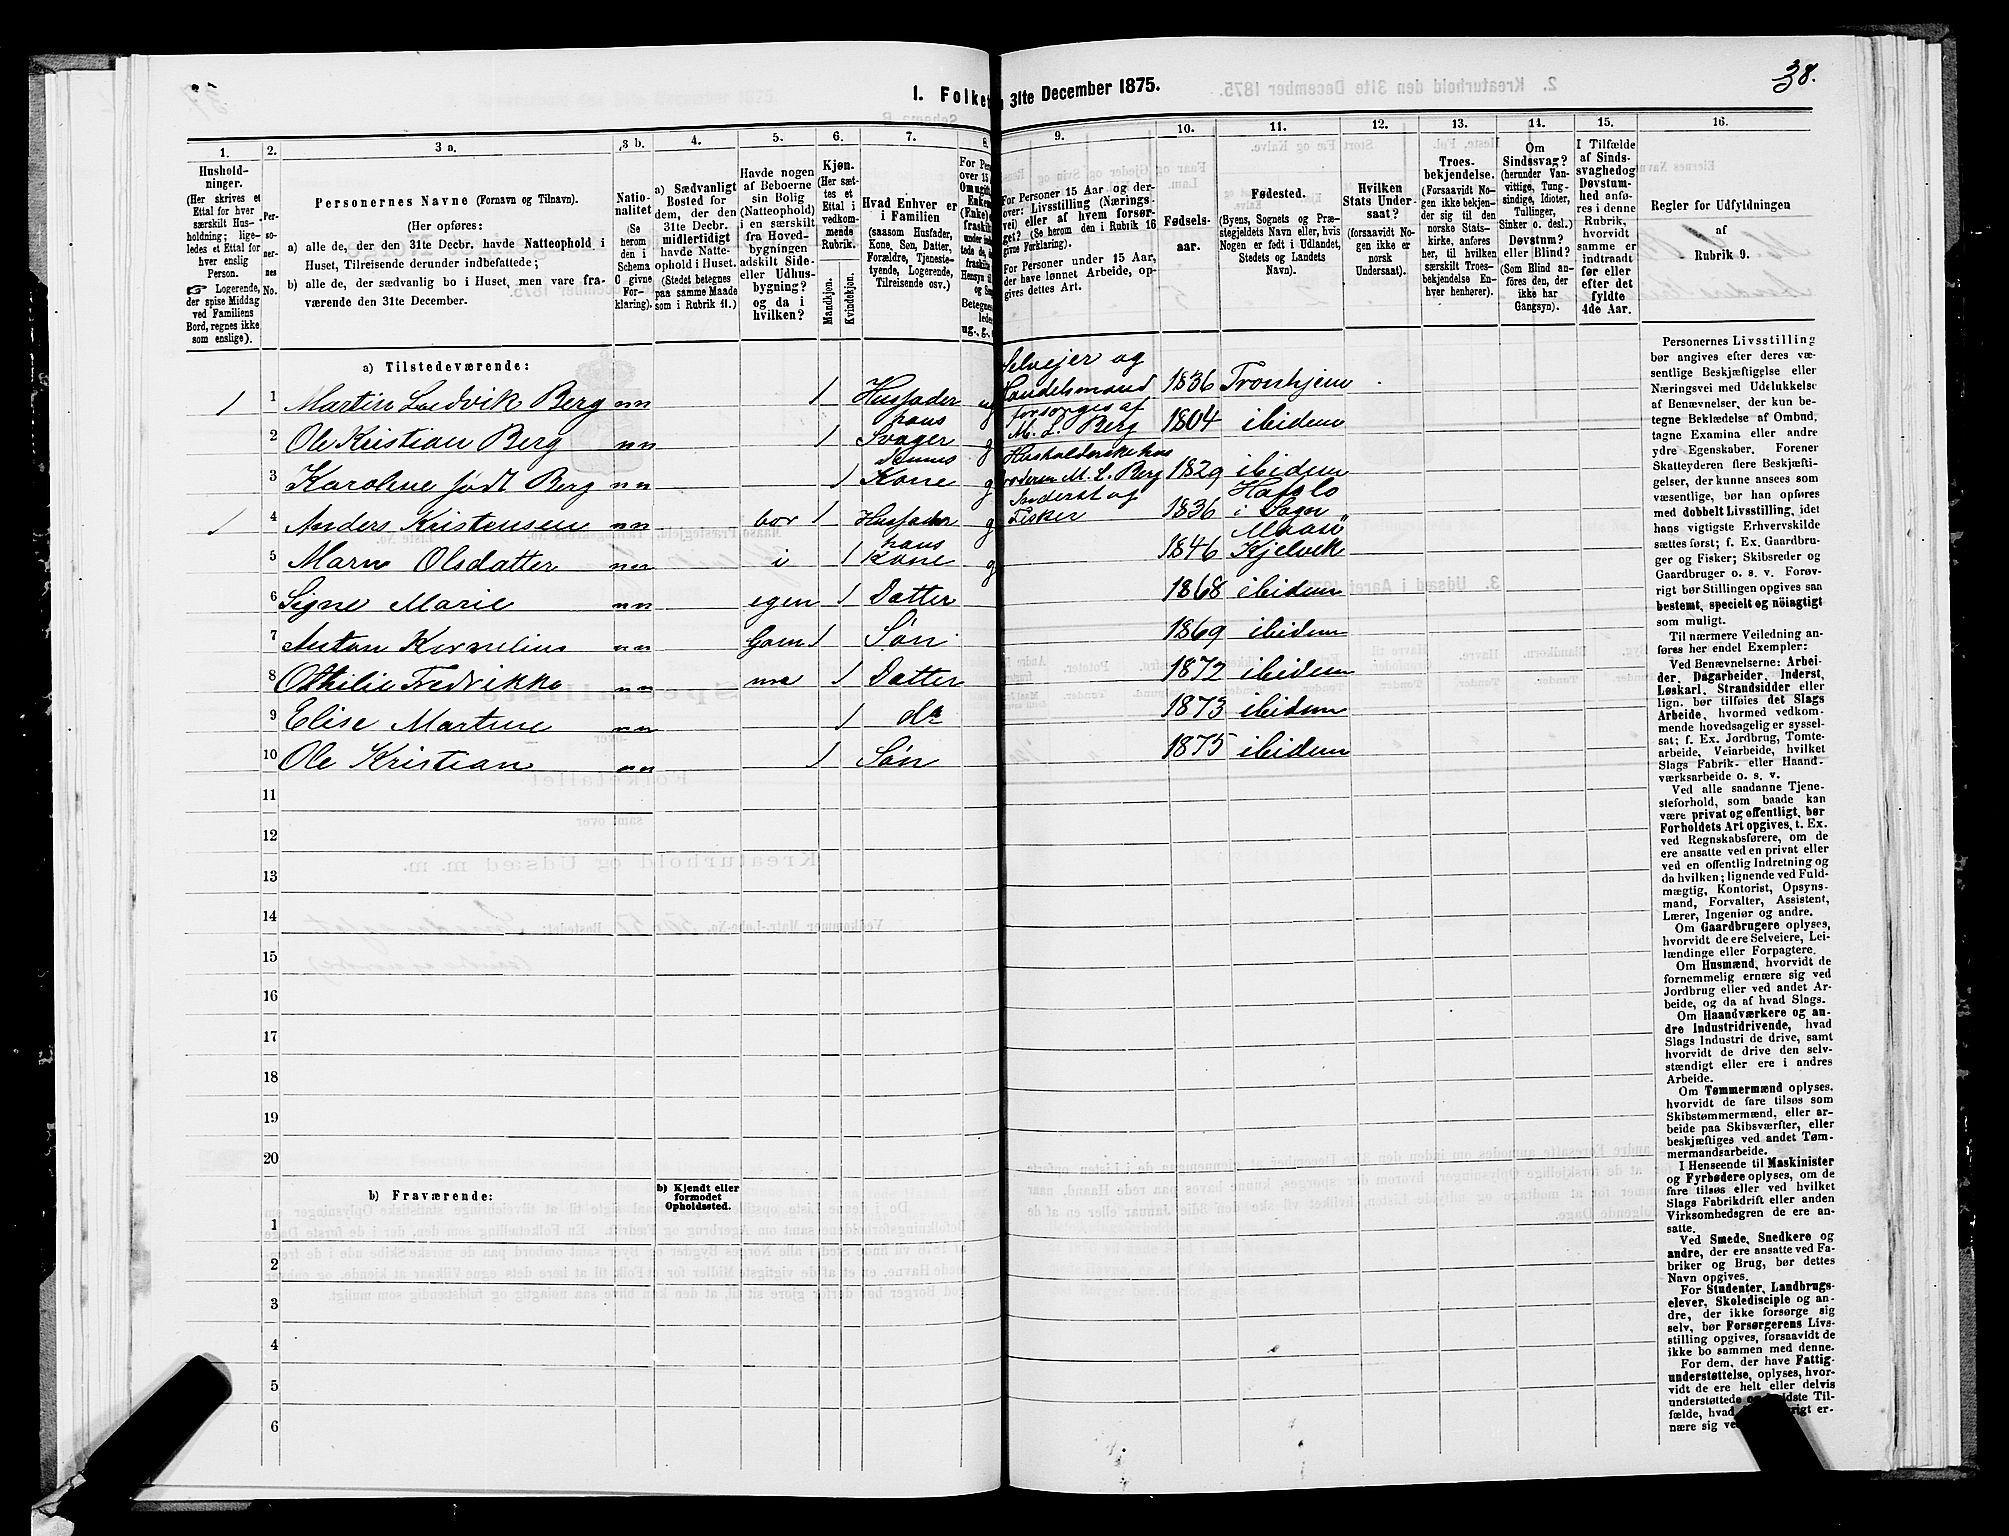 38.
I. Folket
31te December 1875.
1. 2. 3 a. 3 b. 4. 5. 6. 7. 8. 9. 10. 11. 12. 13. 14. 15. 16.
Husholdninger.
(Her skrives et Ettal for hver særskilt Husholdning; ligeledes et Ettal for hver enslig Person.
☞ Logerende, der spise Middag ved Familiens Bord, regnes ikke som enslige).
Personernes No.
Personernes Navne (Fornavn og Tilnavn).
(Her opføres:
a) alle de, der den 31te Decbr. havde Natteophold i Huset, Tilreisende derunder indbefattede;
b) alle de, der sædvanlig bo i Huset, men vare fraværende den 31te December.
Nationalitet (Se herom den i Schema C givne Forklaring).
a) Sædvanligt Bosted for dem, der den 31te Decbr. midlertidigt havde Natteophold i Huset. (Stedet betegnes paa samme Maade som i Rubrik 11.)
Havde nogen af Beboerne sin Bolig (Natteophold) i en særskilt fra Hovedbygningen adskilt Side- eller Udhusbygning? og da i hvilken?
Kjøn. (Her sættes et Ettal i vedkommende Rubrik.
Mandkjøn.
Kvindekjøn.
Hvad Enhver er i Familien (saasom Husfader, Kone, Søn, Datter, Forældre, Tjenestetyende, Logerende, Tilreisende osv.)
For Personer 15 Aar og derover: Livsstilling (Næringsvei) eller af hvem forsørget? (Se herom den i Rubrik 16 givne Forklaring).
For Personer under 15 Aar, der have lønnet Arbeide, opgives dettes Art.
Fødselsaar.
Fødested.
(Byens, Sognets og Præstegjeldets Navn eller, hvis Nogen er født i Udlandet, Stedets og Landets Navn).
Hvilken Stats Undersaat? (forsaavidt Nogen ikke er norsk Undersaat).
Troesbekjendelse. (Forsaavidt Nogen ikke bekjender sig til den norske Statskirke, anføres her, til hvilken særskilt Troesbekjendelse Enhver henhører).
Om Sindssvag? (herunder Vanvittige, Tungsindige, Idioter, Tullinger, Sinker o. desl.) Døvstum? eller Blind? (Som Blind anføres den, der ikke har Gangsyn).
I Tilfælde af Sindssvaghed og Døvstumhed anføres i denne Rubrik, hvorvidt samme er indtraadt før eller efter det fyldte 4de Aar.
Regler for Udfyldningen af Rubrik 9.
a) Tilstedeværende:
1 1 Martin Ludvik Berg nn 1 Husfader ug Selvejer og Handelsmand 1836 Tronhjem
2 Ole Kristian Berg nn 1 hans Svager g forsørges af M. L. Berg 1804 ibidem
3 Karoline født Berg nn 1 dennes Kone g Husholderske hos broderen M. L. Berg 1829 ibidem
1 4 Anders Kristensen nn bor 1 Husfader g Inderst og Fisker 1836 Hafslo i Sogn
5 Marn Olsdatter nn i 1 hans Kone g 1846 Maasø Kjelvik
6 Signe Marie nn egen 1 Datter 1868 ibidem
7 Anton Kornelius nn Gam 1 Søn 1869 ibidem
8 Othilie Fredrikke nn me 1 Datter 1872 ibidem
9 Elise Martine nn 1 do 1873 ibidem
10 Ole Kristian nn 1 Søn 1875 ibidem
11
12
13
14
15
16
17
18
19
20
b) Fraværende:
b) Kjendt eller formodet Opholdssted.
1
2
3
4
5
6
Personernes Livsstilling
bør angives efter deres væ-
sentlige Beskjæftigelse eller
Næringsvei med Udelukkelse
af Benævnelser, der kun be-
tegne Beklædelse af Ombud,
tagne Examina eller andre
ydre Egenskaber. Forener
Skatteyderen flere Beskjæfti-
gelser, der kunne ansees som
væsentlige, bør han opføres
med dobbelt Livsstilling, idet
hans vigtigste Erhvervskilde
sættes først; f. Ex. Gaardbru-
ger og Fisker; Skibsreder og
Gaardbruger o. s. v. Forøv-
rigt bør Stillingen opgives saa
bestemt, specielt og nöiagtigt
som muligt.
Til nærmere Veiledning an-
føres her endel Exempler:
Ved Benævnelserne: Arbei-
der, Dagarbeider, Inderst,
Løskarl, Strandsidder eller
lign. bør tilføies det Slags
Arbeide, hvormed vedkom-
mende hovedsagelig er syssel-
sat; f. Ex. Jordbrug, Tomte-
arbeide, Veiarbeide, hvilket
Slags Fabrik- eller Haand-
værksarbeide o. s. v.
Ved alle saadanne Tjene-
steforhold, som baade kan
være privat og offentligt, bør
Forholdets Art opgives, t. Ex.
ved Regnskabsførere, om de
ere ansatte ved en privat eller
ved en offentlig Indretning og
da hvilken; lignende ved Fuld-
mægtig, Kontorist, Opsyns-
mand, Forvalter, Assistent,
Lærer, Ingeniør og andre.
Om Gaardbrugere oplyses,
hvorvidt de ere Selveiere, Lei-
lændinge eller Forpagtere.
Om Husmænd, hvorvidt de
fornemmelig ernære sig ved
Jordbrug eller ved andet Ar-
beide, og da af hvad Slags.
Om Haandværkere og an-
dre Industridrivende, hvad
Slags Industri de drive, samt
hvorvidt de drive den selv-
stændigt eller ere i andres
Arbeide.
Om Tømmermænd oplyses,
hvorvidt de fare tilsøs som
Skibstømmermænd, eller ar-
beide paa Skibsværfter, eller
beskjæftiges ved andet Tøm-
mermandsarbeide.
I Henseende til Maskinister
og Fyrbødere oplyses, om de
fare tilsøs eller ved hvilket
Slags Fabrikdrift eller anden
Virksomhedsgren de ere an-
satte.
Ved Smede, Snedkere og
andre, der ere ansatte ved Fa-
briker og Brug, bør dettes
Navn opgives.
For Studenter, Landbrugs-
elever, Skoledisciple og an-
dre, der ikke forsørge sig
selv, bør Forsørgerens Livs-
stilling opgives, forsaavidt de
ikke bo sammen med denne.
For dem, der have Fattig-
understøttelse, oplyses, hvor-
vidt de ere helt eller delvis